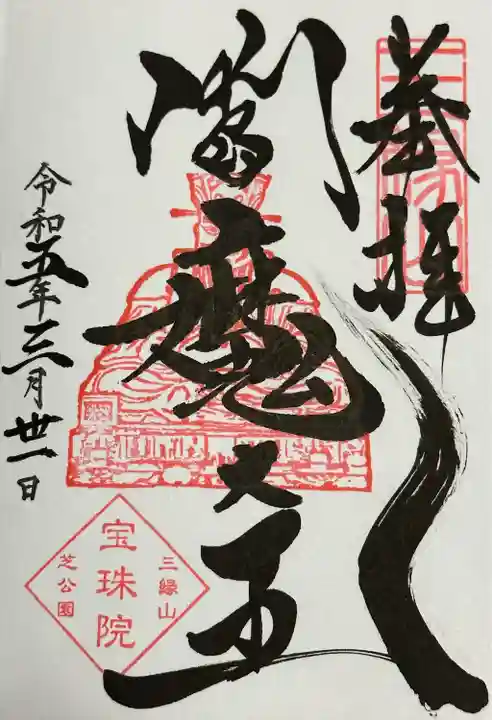 奉拝
三縁山
閻魔大王
令和五年三月卅一日
三縁山
宝珠院
芝公園